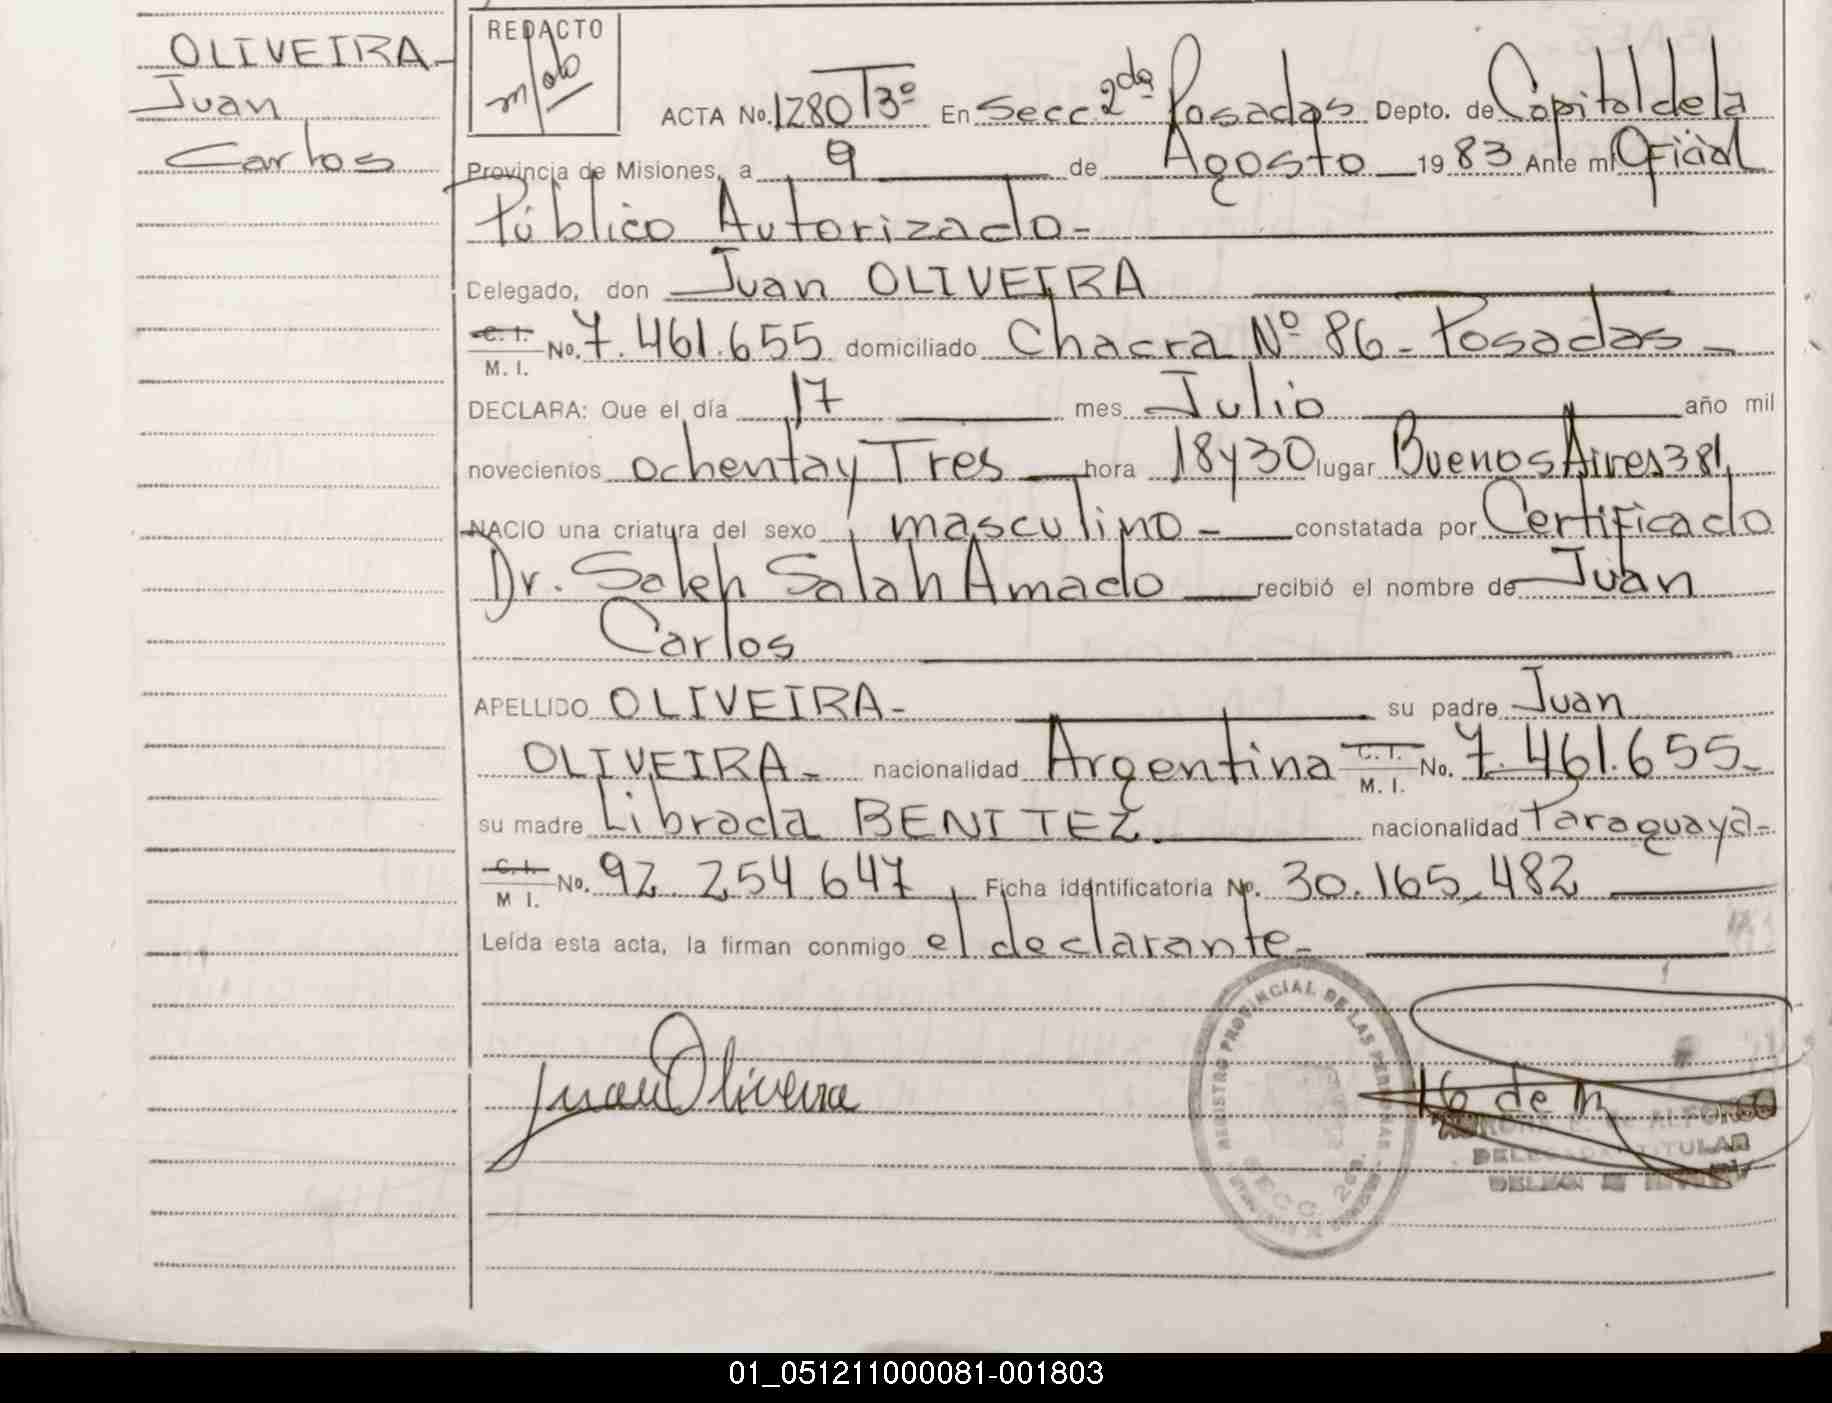 OLIVEIRA-
Juan
Carlos
REDACTO
ACTA No. 1280 T3º En Secc. 2da Posadas Depto. de Capital de la
Provincia de Misiones, a 9 de Agosto 1983 Ante mí Oficial
Público Autorizado-
Delegado, don Juan OLIVEIRA
C. I. M. I. No. 7.461.655 domiciliado Chacra Nº 86- Posadas-
DECLARA: Que el día 17 mes Julio año mil
novecientos ochenta y Tres hora 18 y 30 lugar Buenos Aires 381,
NACIO una criatura del sexo masculino- constatada por Certificado
Dr. Saleh Salah Amado recibió el nombre de Juan
Carlos
APELLIDO OLIVEIRA- su padre Juan
OLIVEIRA- nacionalidad Argentina C. I. M. I. No. 7.461.655-
su madre Librada BENITEZ nacionalidad Paraguaya-
C. I. M I. No. 92.254.647, Ficha identificatoria No. 30.165.482
Leída esta acta, la firman conmigo el declarante-
Juan Oliveira
REGISTRO PROVINCIAL DE LAS PERSONAS
SECC. 2da.
DE ALFONSO
TITULAR
01_051211000081-001803